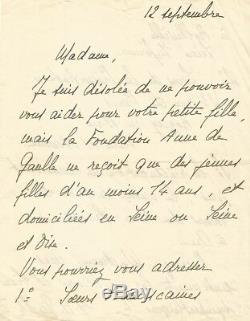 12 septembre
Madame,
Je suis désolée de ne pouvoir
vous aider pour votre petite fille,
mais la Fondation Anne de
Gaulle ne reçoit que des jeunes
filles d'au moins 14 ans, et
domiciliées en Seine ou Seine
et Oise.
Vous pourriez vous adresser
1° Sœurs